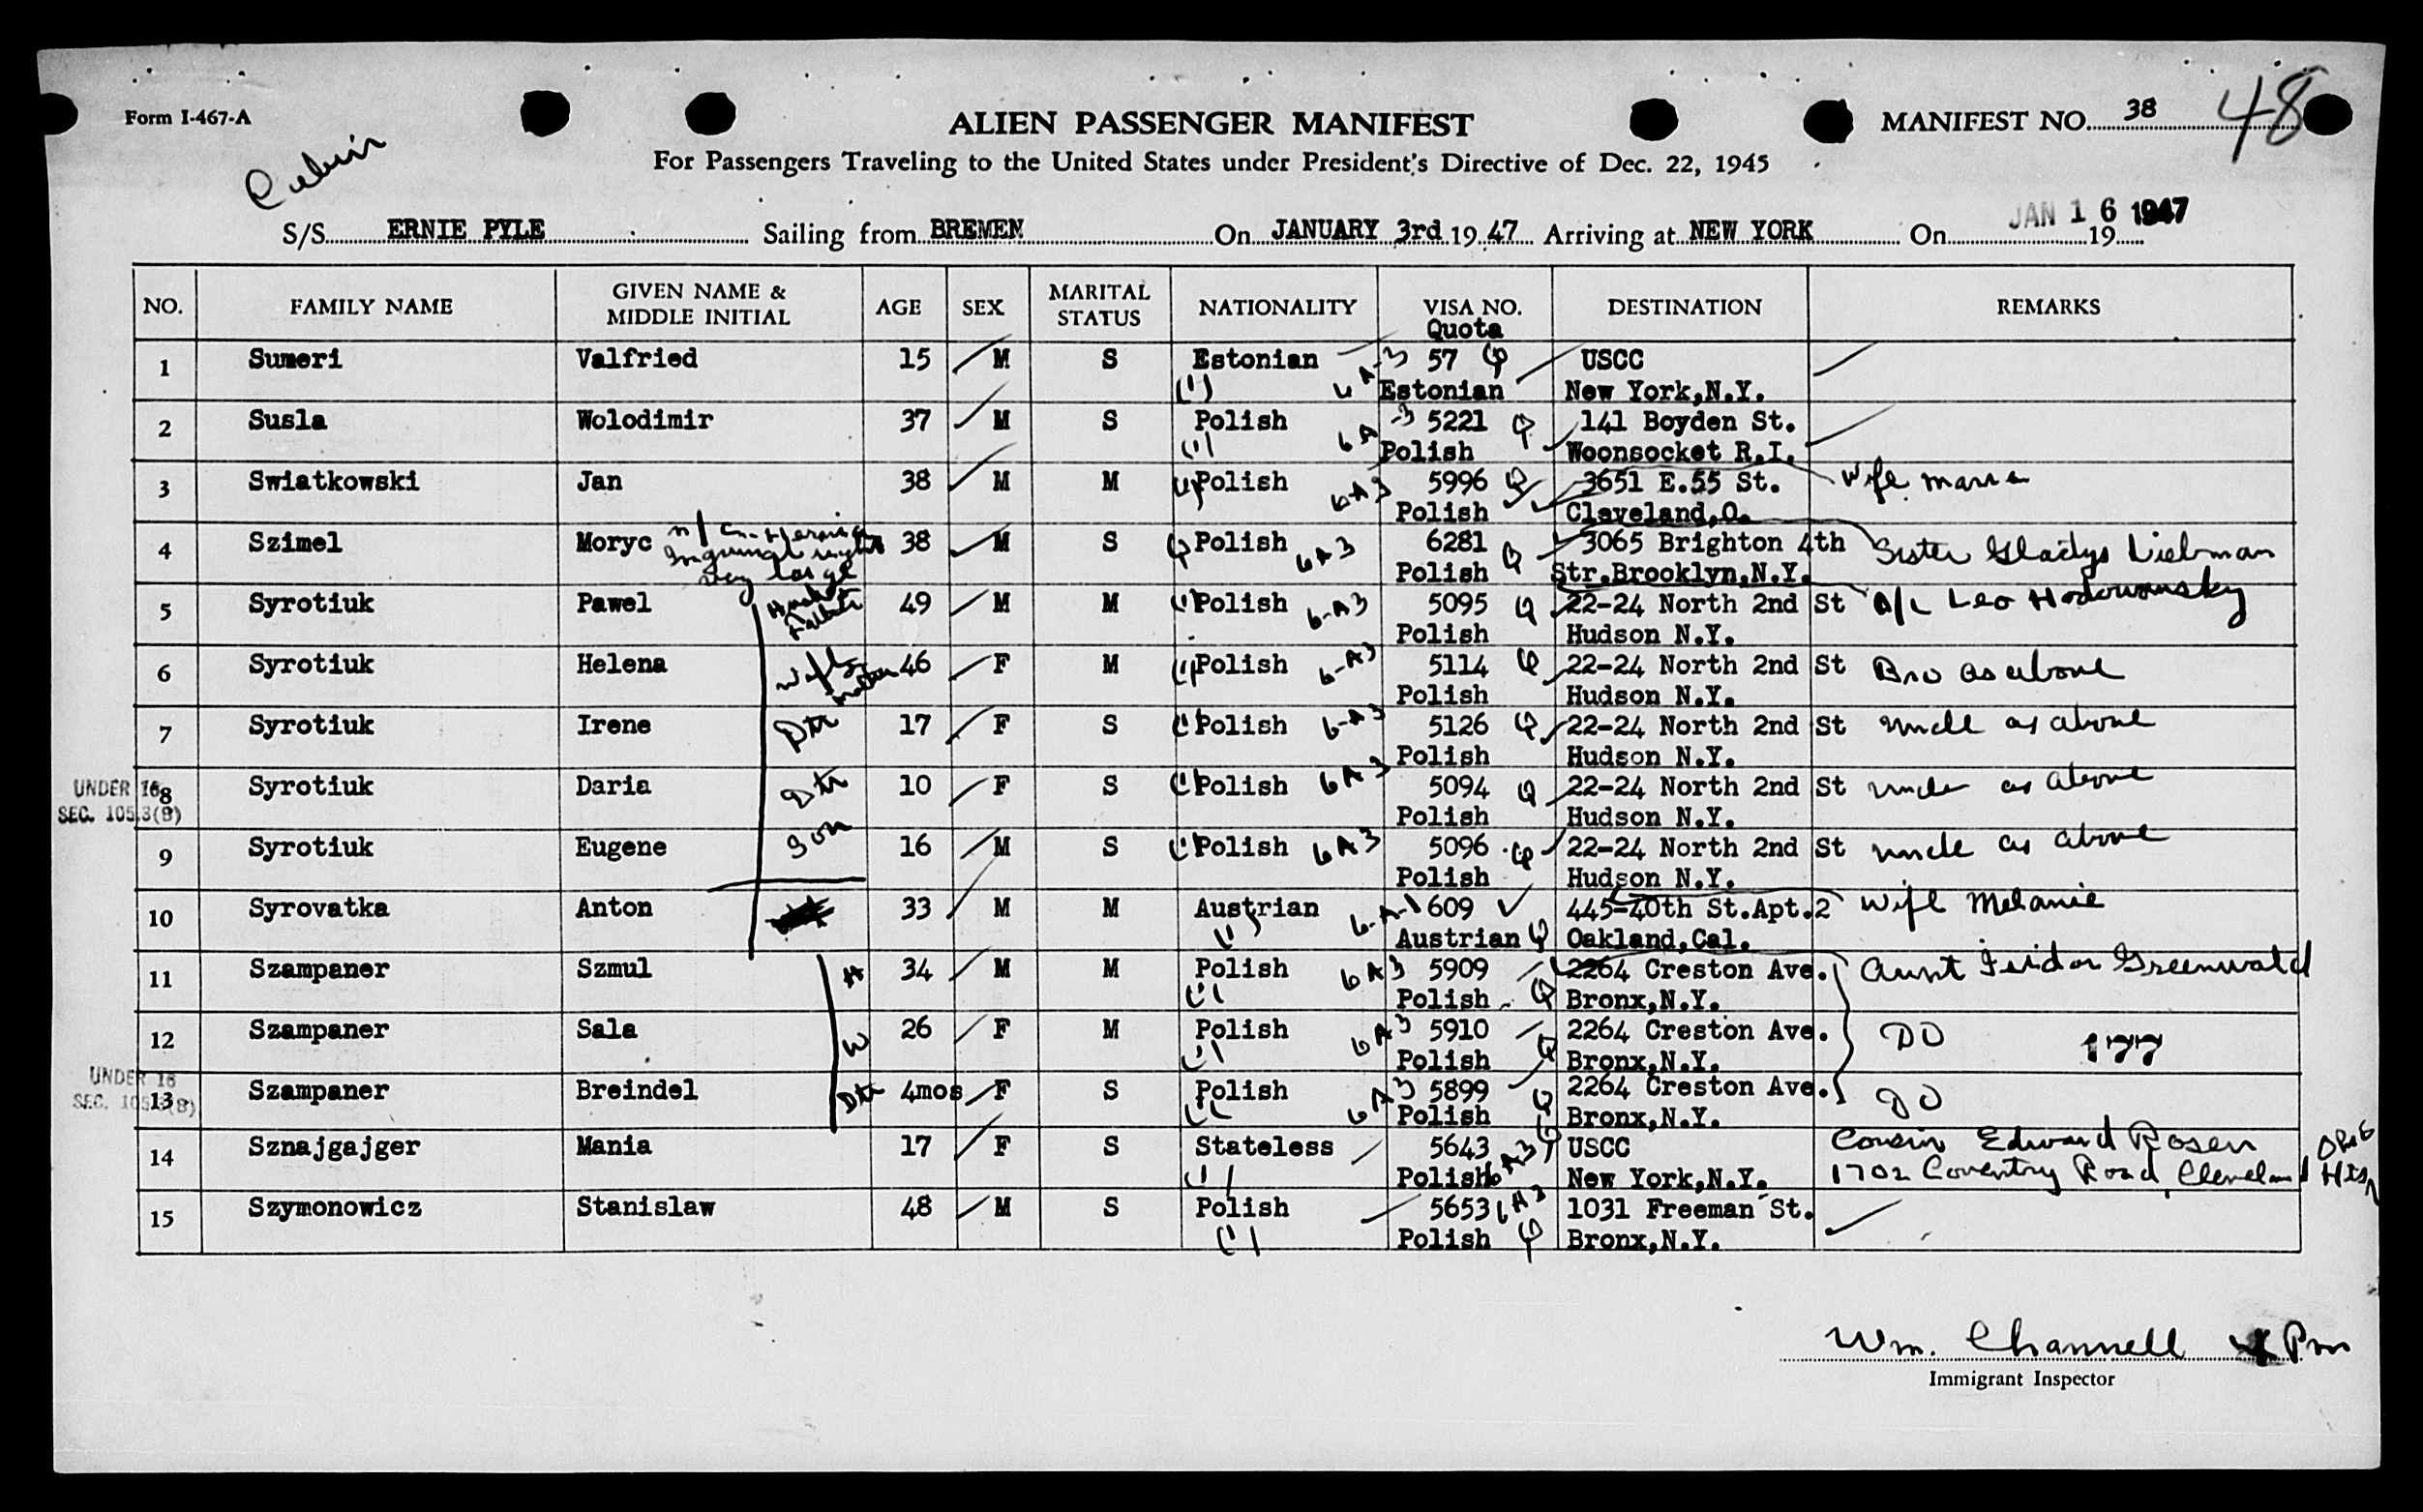 Form I-467-A
ALIEN PASSENGER MANIFEST
MANIFEST NO. 38
48
For Passengers Traveling to the United States under President's Directive of Dec. 22, 1945
S/S ERNIE PYLE Sailing from BREMEN On JANUARY 3rd 19 47 Arriving at NEW YORK On JAN 16 1947 19
NO. FAMILY NAME GIVEN NAME & MIDDLE INITIAL AGE SEX MARITAL STATUS NATIONALITY VISA NO. Quota DESTINATION REMARKS
1 Sumeri Valfried 15 M S Estonian 6A-3 57 USCC
Estonian New York,N.Y.
2 Susla Wolodimir 37 M S Polish 6A-3 5221 141 Boyden St.
Polish Woonsocket R.I.
3 Swiatkowski Jan 38 M M Polish 6A3 5996 3651 E.55 St. Wife Maria
Polish Cleveland,O.
4 Szimel Moryc very large 38 M S Polish 6A3 6281 3065 Brighton 4th Sister Gladys Liebman
Polish Str.Brooklyn,N.Y.
5 Syrotiuk Pawel 49 M M Polish 6-A3 5095 22-24 North 2nd St B/L Leo
Polish Hudson N.Y.
6 Syrotiuk Helena Wife mother 46 F M Polish 6-A3 5114 22-24 North 2nd St Bro as above
Polish Hudson N.Y.
7 Syrotiuk Irene Dtr 17 F S Polish 6-A3 5126 22-24 North 2nd St uncle as above
Polish Hudson N.Y.
UNDER 16
SEC. 105.3(B)
8 Syrotiuk Daria Dtr 10 F S Polish 6A3 5094 22-24 North 2nd St uncle as above
Polish Hudson N.Y.
9 Syrotiuk Eugene Son 16 M S Polish 6A3 5096 22-24 North 2nd St uncle as above
Polish Hudson N.Y.
10 Syrovatka Anton 33 M M Austrian 6-A-1 609 445-40th St.Apt.2 Wife Melanie
Austrian Oakland,Cal.
11 Szampaner Szmul H 34 M M Polish 6A3 5909 2264 Creston Ave. Aunt Greenwald
Polish Bronx,N.Y.
12 Szampaner Sala W 26 F M Polish 6A3 5910 2264 Creston Ave. DO 177
Polish Bronx,N.Y.
UNDER 16
SEC. 105.3(B)
13 Szampaner Breindel Dtr 4mos F S Polish 6A3 5899 2264 Creston Ave. DO
Polish Bronx,N.Y.
14 Sznajgajger Mania 17 F S Stateless 5643 6A3 USCC Cousin Edward Rosen
Polish New York,N.Y. 1702 Coventry Road, Cleveland Hts,
15 Szymonowicz Stanislaw 48 M S Polish 5653 6A3 1031 Freeman St.
Polish Bronx,N.Y.
Wm. Channell
Immigrant Inspector